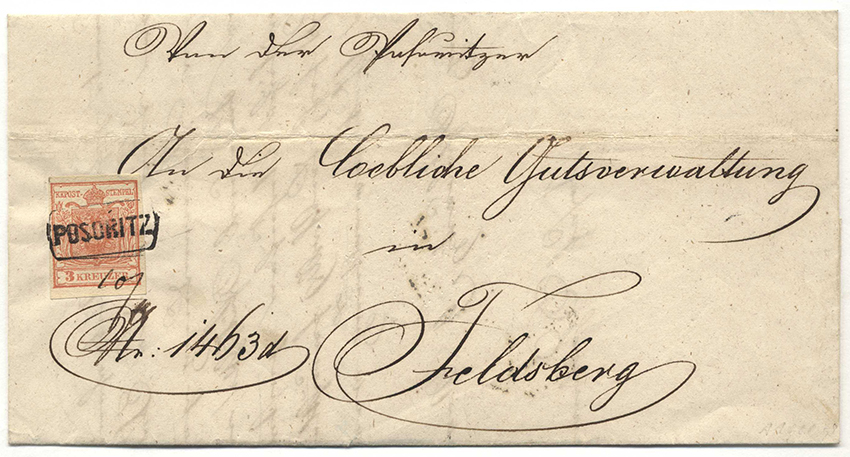 Von der Posořitzer
An die Loebliche Gutsverwaltung
KKPOST-STEMPEL
POSORITZ
in
3 KREUZER
Nr: 1463d
Feldsberg